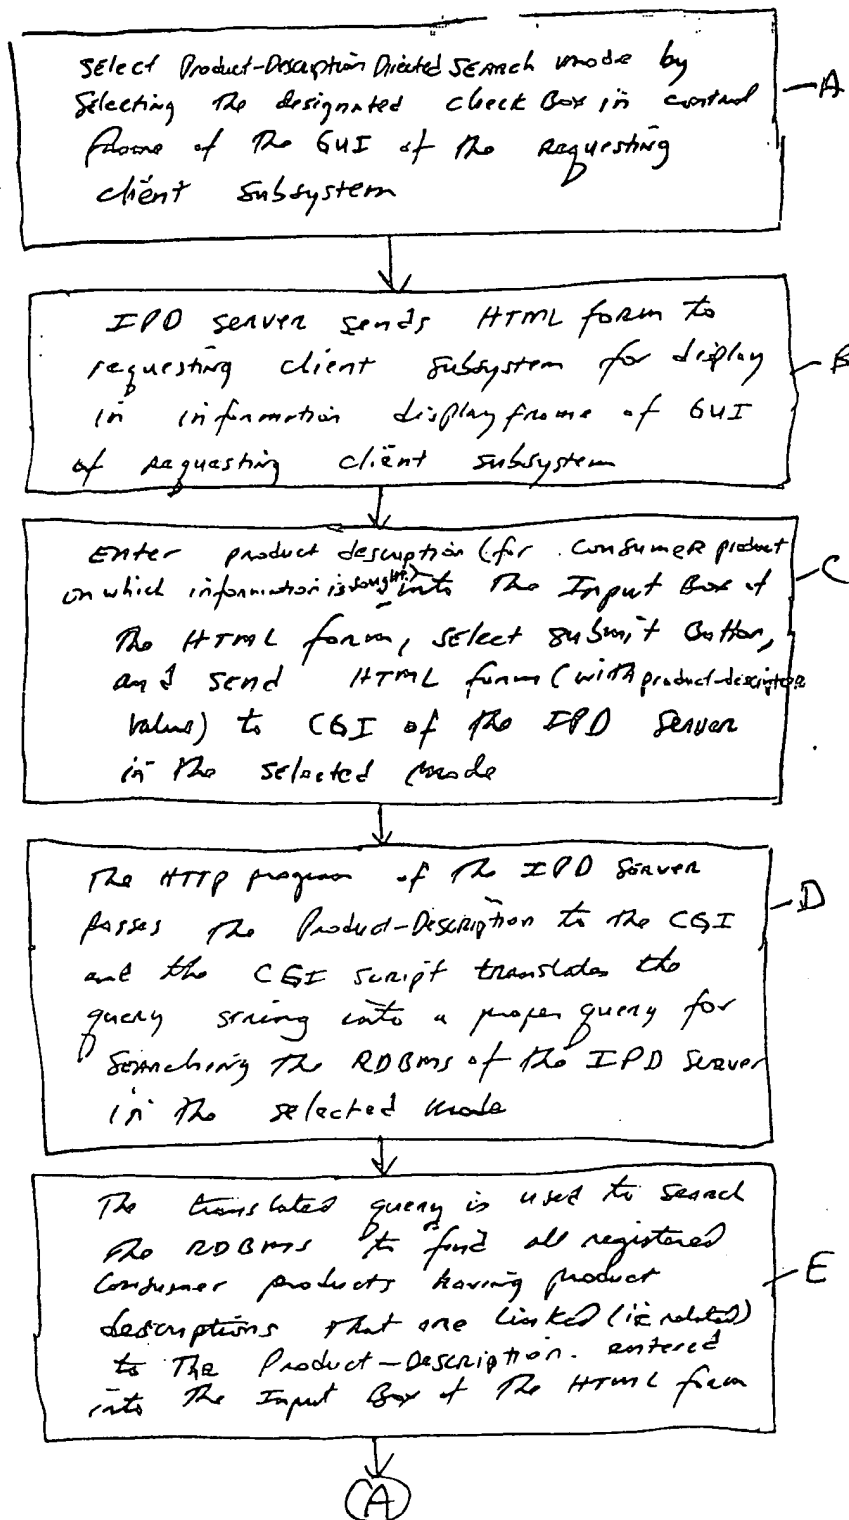 Select Product-Description Directed Search mode by
Selecting the designated check Box in control
frame of the GUI of the requesting
client subsystem
A
IPD Server sends HTML form to
requesting client subsystem for display
in information display frame of GUI
of requesting client subsystem
B
Enter product description (for consumer product
on which information is sought) into the Input Box of
the HTML form, select submit Button,
and send HTML form (with product-descriptor
value) to CGI of the IPD Server
in the selected mode
C
The HTTP program of the IPD Server
passes the Product-Description to the CGI
and the CGI script translates the
query string into a proper query for
Searching the RDBMS of the IPD Server
in the selected mode
D
The translated query is used to search
the RDBMS to find all registered
consumer products having product
descriptions that are linked (ie related)
to the Product-Description entered
into the Input Box of the HTML form
E
A